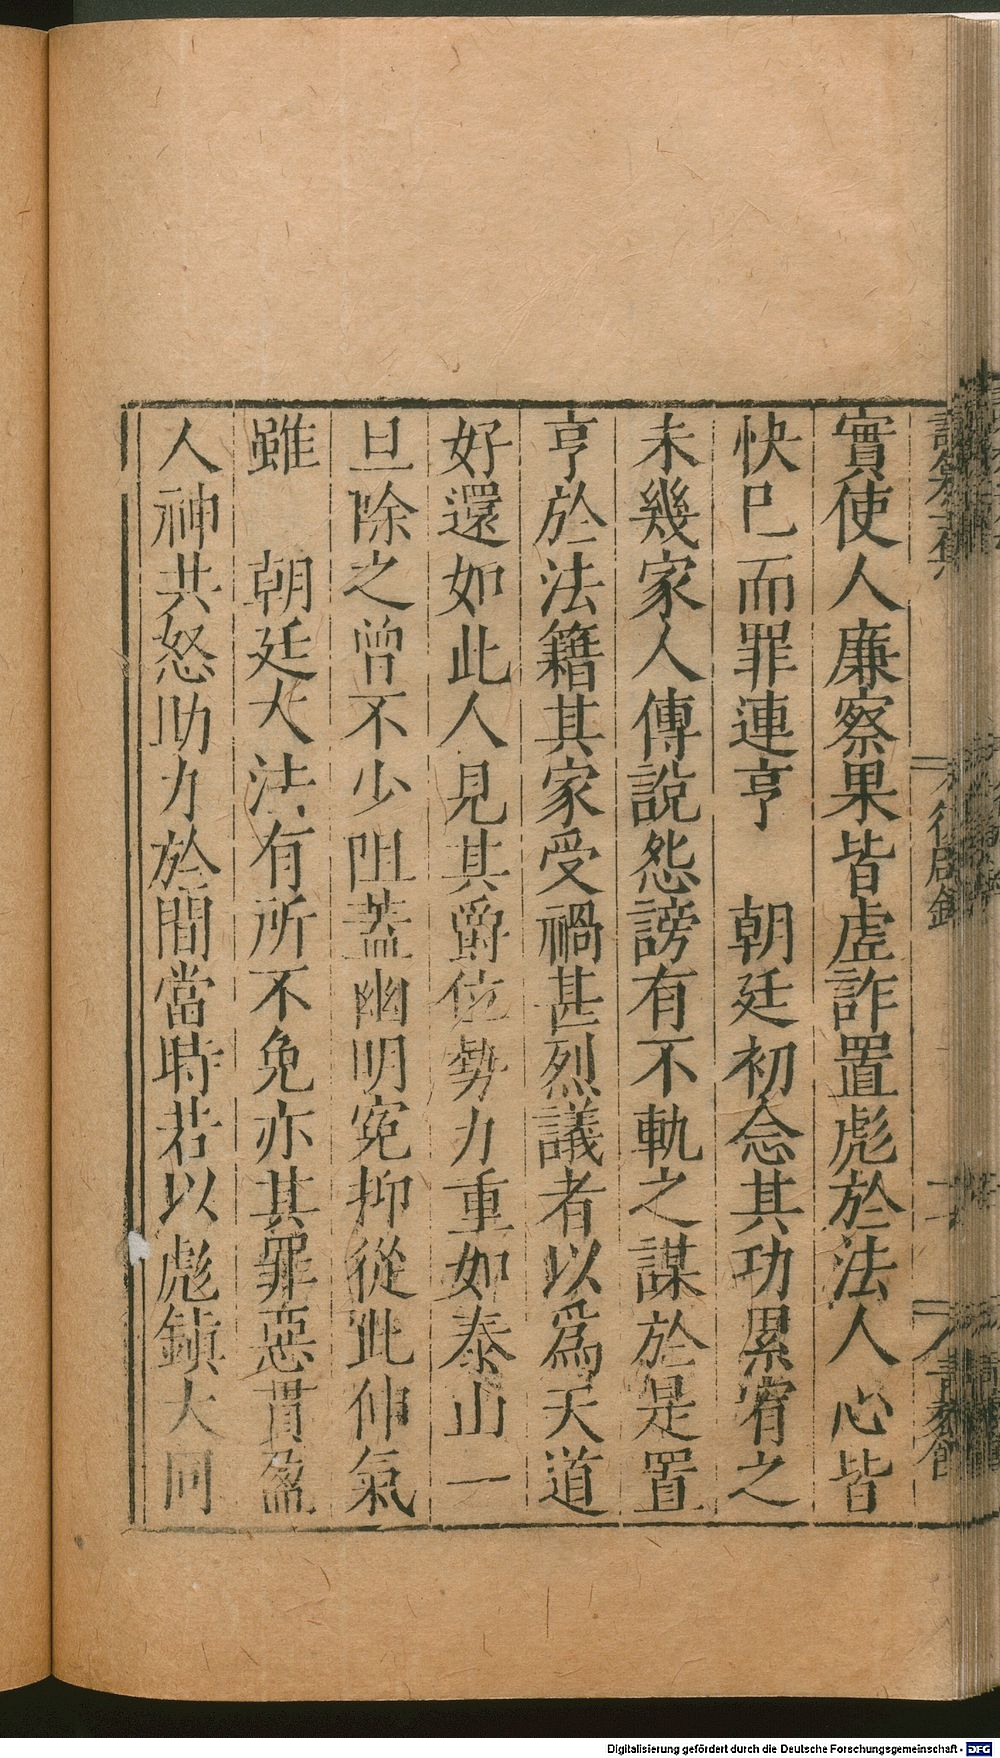 實使人廉察果皆虛詐置彪於法人心皆
快巳而罪連亨　朝廷初念其功累宥之
未幾家人傳說怨謗有不軌之謀於是置
亨於法籍其家受禍甚烈議者以爲天道
好還如此人見其爵位勢力重如泰山一
旦除之曾不少阻蓋幽明寃抑從此伸氣
雖　朝廷大法有所不免亦其罪惡貫盈
人神共怒助力於間當時若以彪鎮大同
Digitalisierung gefördert durch die Deutsche Forschungsgemeinschaft - DFG